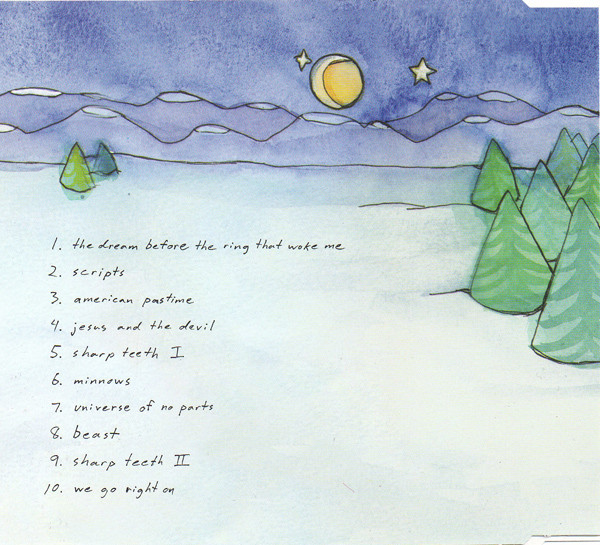 1. the dream before the ring that woke me
2. scripts
3. american pastime
4. jesus and the devil
5. sharp teeth I
6. minnows
7. universe of no parts
8. beast
9. sharp teeth II
10. we go right on